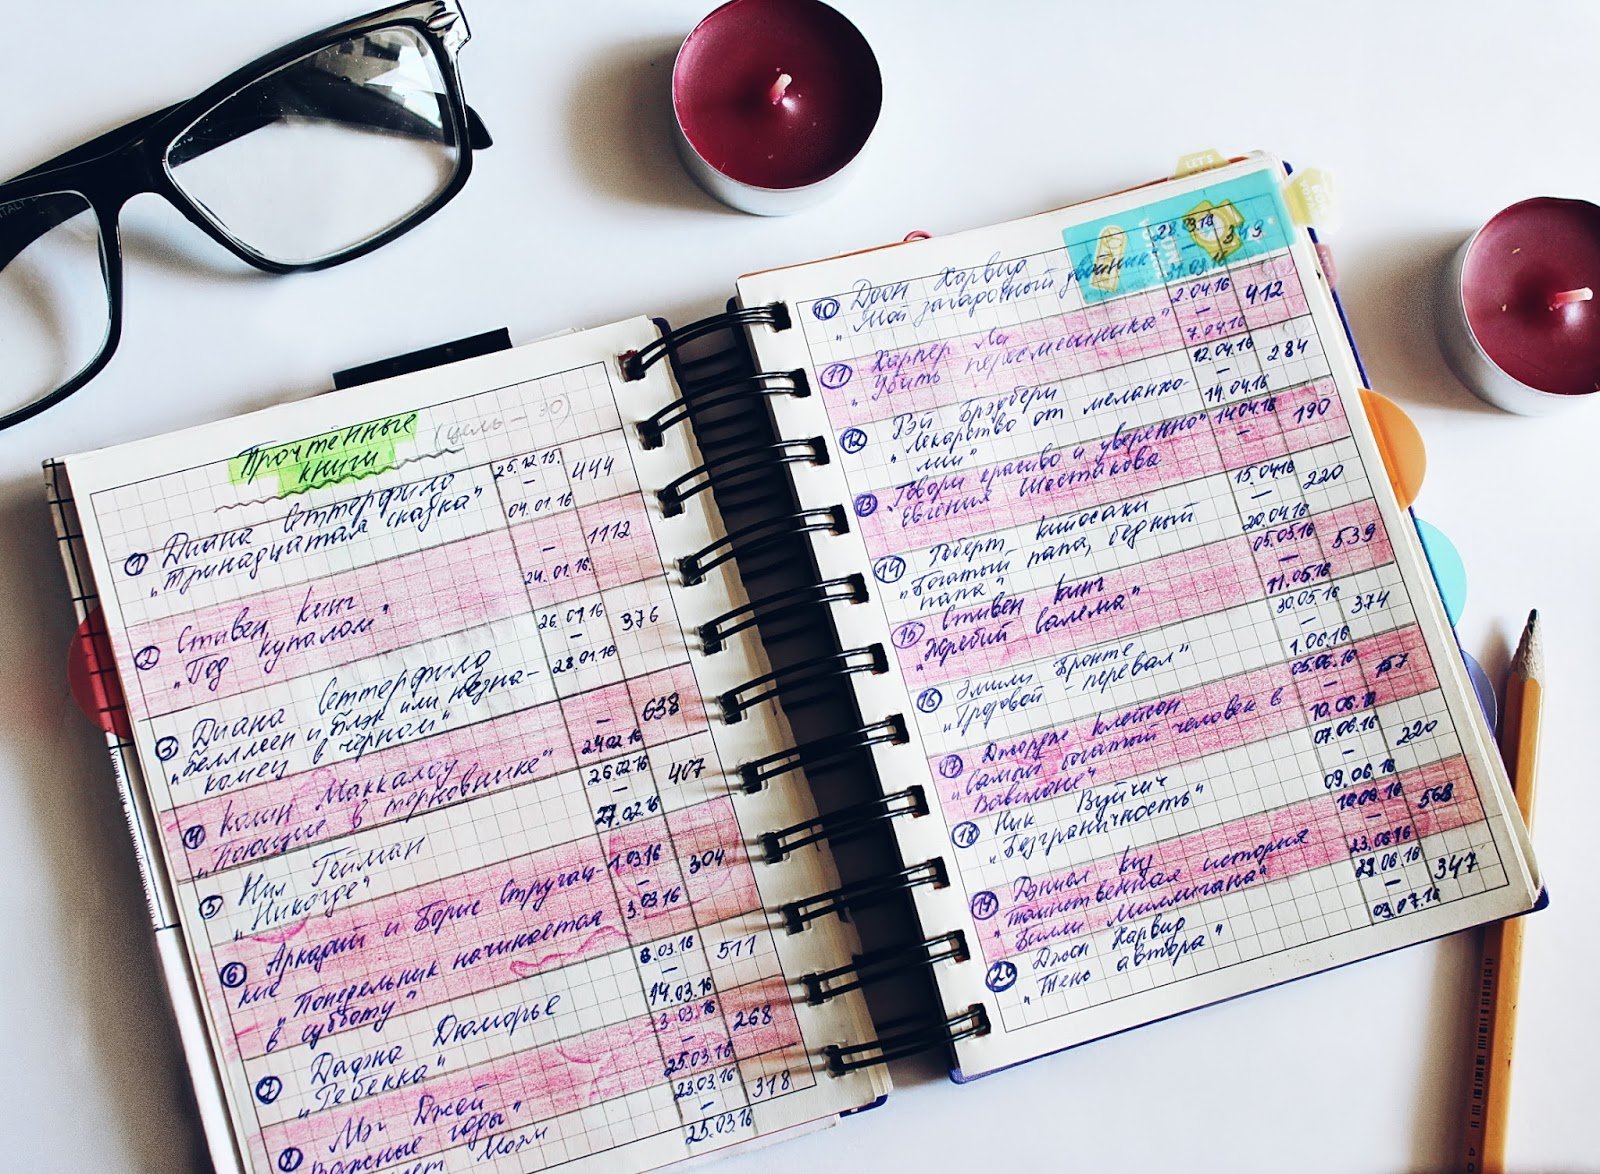 Прочтённые
книги (цель – 30)
1 Диана Сеттерфилд 26.12.15. – 04.01.16 444
"Тринадцатая сказка"
2 Стивен Кинг – 24.01.16. 1112
"Под куполом"
3 Диана Сеттерфилд 26.01.16 – 28.01.16 376
"Беллмен и Блэк или незна-
комец в чёрном"
4 Колин Маккалоу – 24.02.16 638
"Поющие в терновнике"
5 Нил Гейман 26.02.16 – 27.02.16 407
"Никогде"
6 Аркадий и Борис Стругац- 1.03.16 – 3.03.16 304
кие "Понедельник начинается
в субботу"
7 Дафна Дюморье 8.03.16 – 14.03.16 511
"Ребекка"
8 Мэг Джей 3.03.16 – 25.03.16 268
"Важные годы"
Моэм 23.03.16 – 25.03.16 318
10 Джон Харвуд 28.03.16 – 31.03.16 349
"Мой загадочный двойник"
11 Харпер Ли 2.04.16 – 7.04.16 412
"Убить пересмешника"
12 Рэй Брэдбери 12.04.16 – 14.04.16 284
"Лекарство от меланхо-
лии"
13 "Говори красиво и уверенно" 14.04.16 – 190
Евгения Шестакова
14 Роберт Кийосаки 15.04.16 – 20.04.16 220
"Богатый папа, бедный
папа"
15 Стивен Кинг 05.05.16 – 11.05.16 539
"Жребий Салема"
16 Эмили Бронте 30.05.16 – 1.06.16 374
"Грозовой перевал"
17 Джордж Клейсон 05.06.16 – 10.06.16 157
"Самый богатый человек в
Вавилоне"
18 Ник Вуйчич 07.06.16 – 09.06.16 220
"Безграничность"
19 Дэниел Киз 10.06.16 – 23.06.16 568
"Таинственная история
Билли Миллигана"
20 Джон Харвуд 29.06.16 – 03.07.16 347
"Тень автора"
LET'S